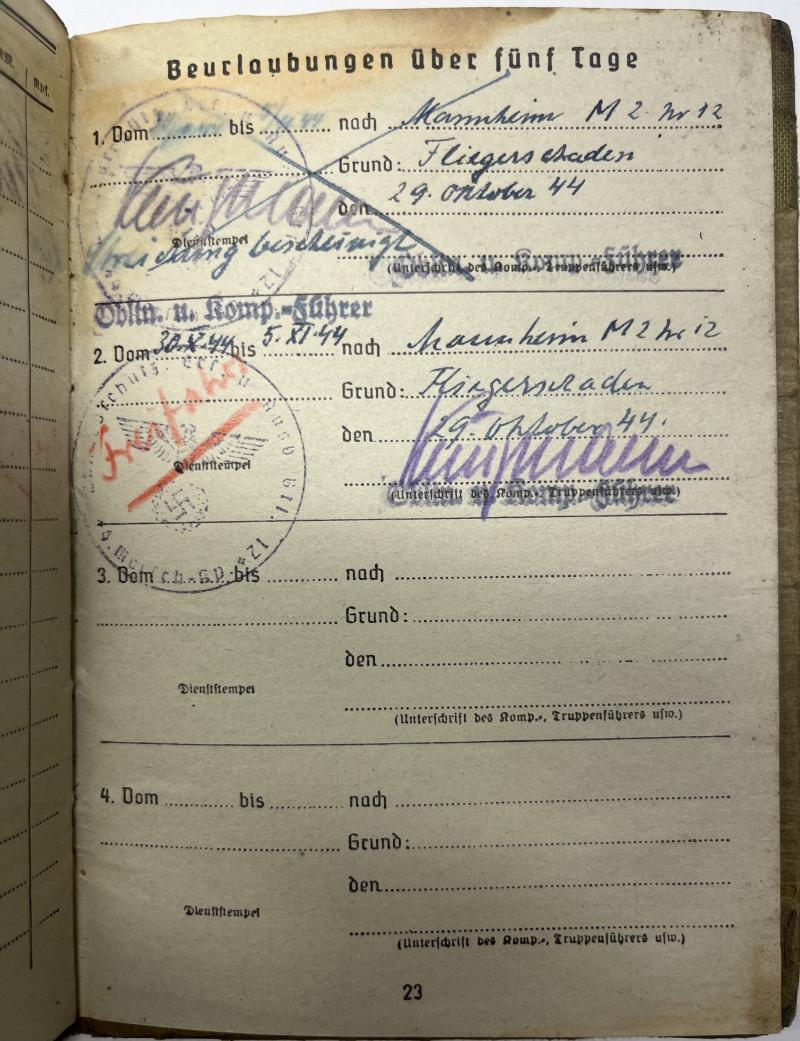 Beurlaubungen über fünf Tage
1. Vom bis nach Mannheim M 2 Nr 12
Grund: Fliegerschaden
den 29. Oktober 44
Dienststempel
Streichung bescheinigt
(Unterschrift des Komp.-, Truppenführers usw.)
Obltn. u. Komp.-Führer
Obltn. u. Komp.-Führer
2. Vom 30.X.44 bis 5.XI.44 nach Mannheim M 2 Nr 12
Grund: Fliegerschaden
den 29. Oktober 44.
Dienststempel
(Unterschrift des Komp.-, Truppenführers usw.)
Obltn. u. Komp.-Führer
3. Vom bis nach
Grund:
den
Dienststempel
(Unterschrift des Komp.-, Truppenführers usw.)
4. Vom bis nach
Grund:
den
Dienststempel
(Unterschrift des Komp.-, Truppenführers usw.)
23